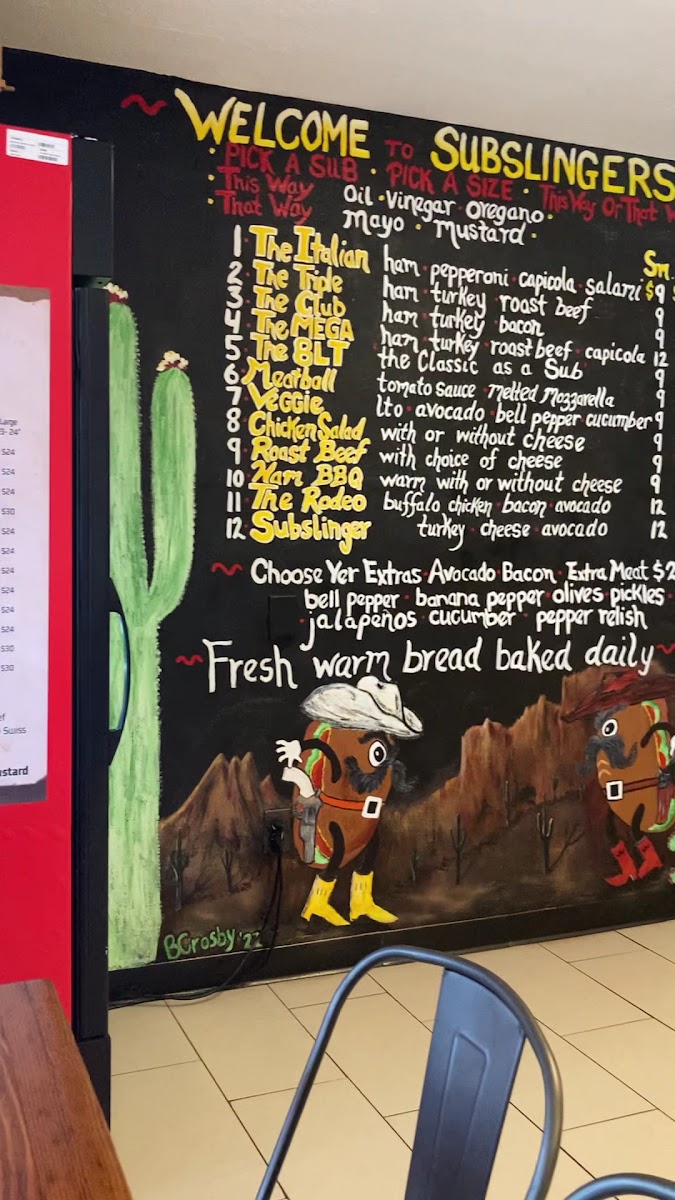 WELCOME TO SUBSLINGERS
• PICK A SUB • PICK A SIZE • This Way Or That W
• This Way
• That Way
Oil • Vinegar • Oregano •
Mayo • Mustard •
Sm
1 The Italian ham • pepperoni • capicola • salami $9
2 The Triple ham • turkey • roast beef 9
3 The Club ham • turkey • bacon 9
4 The MEGA ham • turkey • roast beef • capicola 12
5 The BLT the Classic as a Sub 9
6 Meatball tomato sauce • Melted Mozzarella 9
7 Veggie lto • avocado • bell pepper • cucumber 9
8 Chicken Salad with or without cheese 9
9 Roast Beef with choice of cheese 9
10 Ham BBQ warm with or without cheese 9
11 The Rodeo buffalo chicken • bacon • avocado 12
12 Subslinger turkey • cheese • avocado 12
Choose Yer Extras • Avocado • Bacon • Extra Meat $2
bell pepper • banana pepper • olives • pickles •
• jalapeños • cucumber • pepper relish
Fresh warm bread baked daily
BCrosby '22
Large
- 24"
$24
$24
$24
$30
$24
$24
$24
$24
$24
$24
$30
$30
ef
Swiss
stard